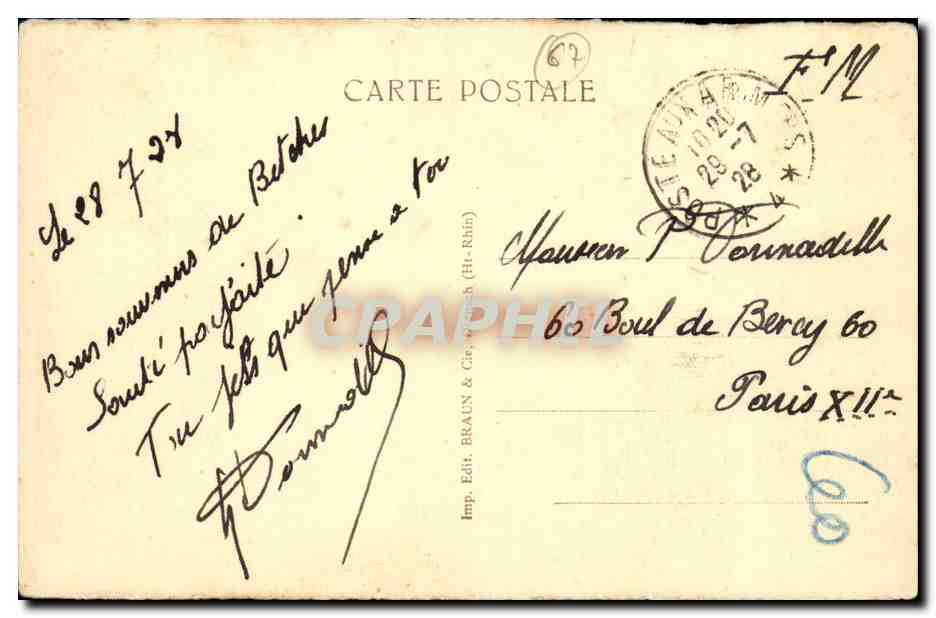 67
CARTE POSTALE
F M
POSTE AUX ARMEES
18 20
29 -7
28
* 4 *
Le 28 7 28
Bons souvenirs de Bitche
Santé parfaite
Tu fils qui pense a toi
Monsieur Dournadille
60 Boul de Bercy 60
Paris XIIe
60
Imp. Edit. BRAUN & Cie, (Ht-Rhin)
CPARAMA